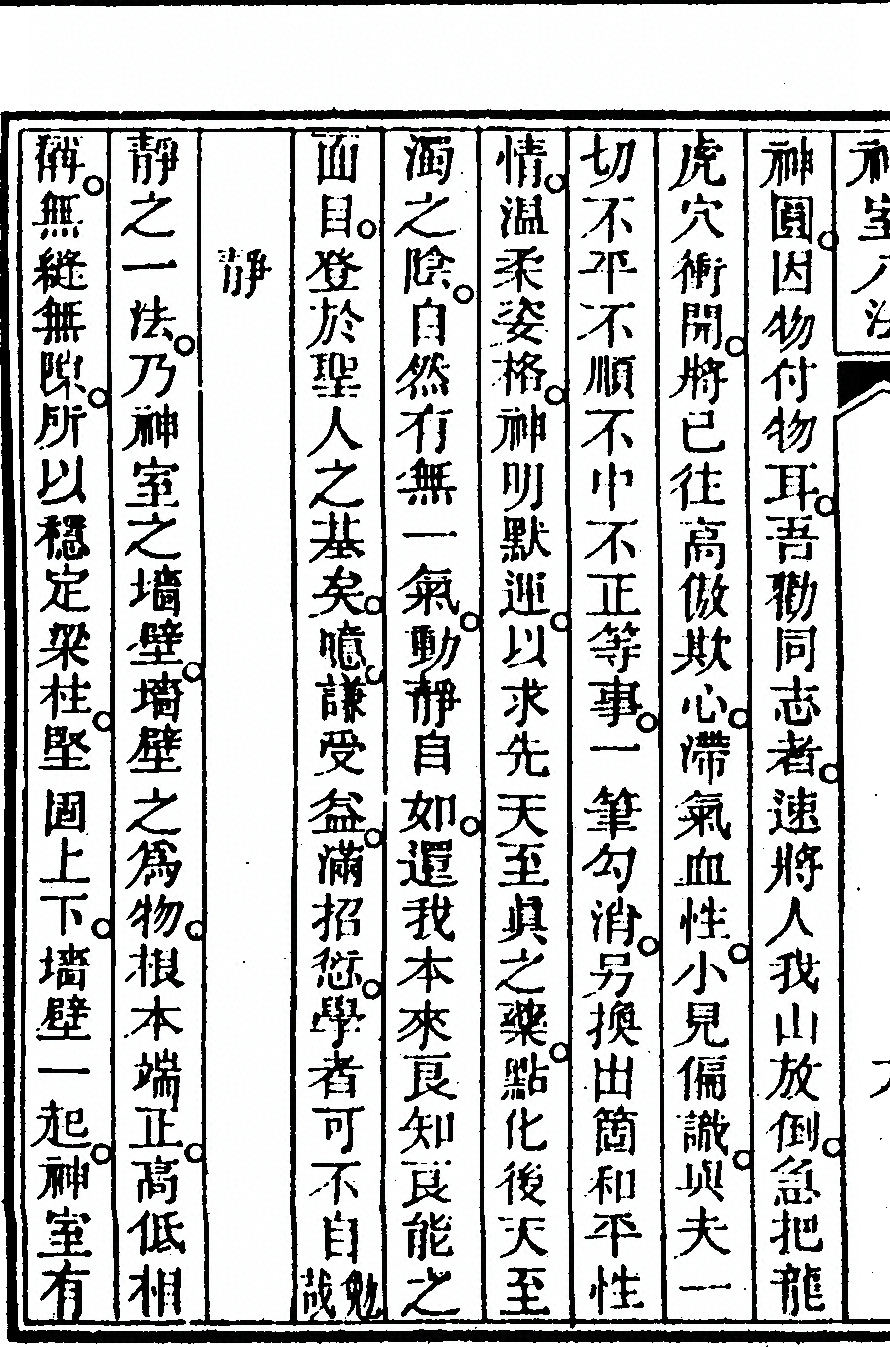 神室八法
神圓。因物付物耳。吾勸同志者。速將人我山放倒。急把龍
虎穴衝開。將已往高傲欺心。滯氣血性。小見偏識。與夫一
切不平不順不中不正等事。一筆勾消。另換出箇和平性
情。溫柔姿格。神明默運。以求先天至眞之藥。點化後天至
濁之陰。自然有無一氣。動靜自如。還我本來良知良能之
面目。登於聖人之基矣。噫。謙受益。滿招愆。學者可不自勉哉
靜
靜之一法。乃神室之墻壁。墻壁之爲物。根本端正。高低相
稱。無縫無隙。所以穩定梁柱。堅固上下。墻壁一起。神室有